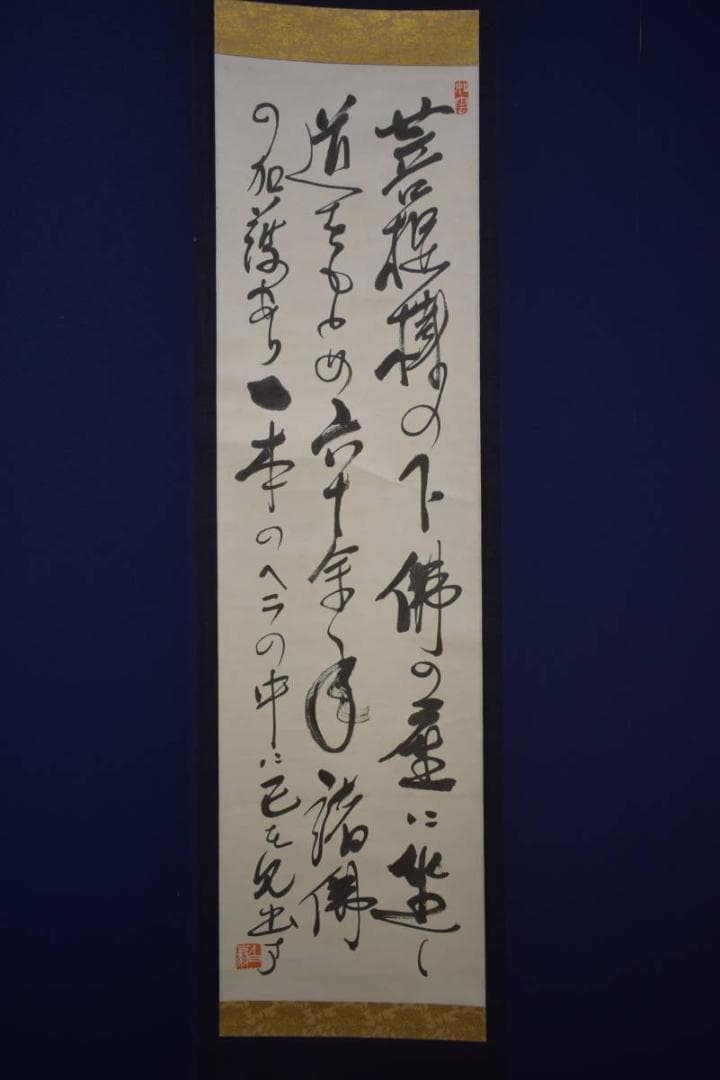 菩提樹の下佛の座に
道をもとめ六十余年諸佛
の加護あり一本のヘラの中に己を見出す